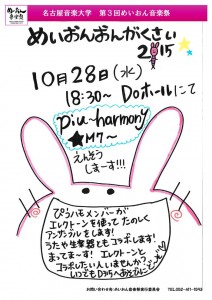 めいおん音楽祭
名古屋音楽大学 第3回めいおん音楽祭
めいおんおんがくさい
2015
10月28日(水)
18:30~ Doホールにて
piu-harmony
★M7~
えんそう
しまーす!!!
ぴうハモメンバーが
エレクトーンを使って たのしく
アンサンブルをします!
うたや生楽器とも コラボします!
まってまーす! エレクトーンと
コラボしたい人いませんか?
いつでもD35へおあそびに♡
お問い合わせ先:めいおん音楽祭実行委員会
TEL.052-411-1545